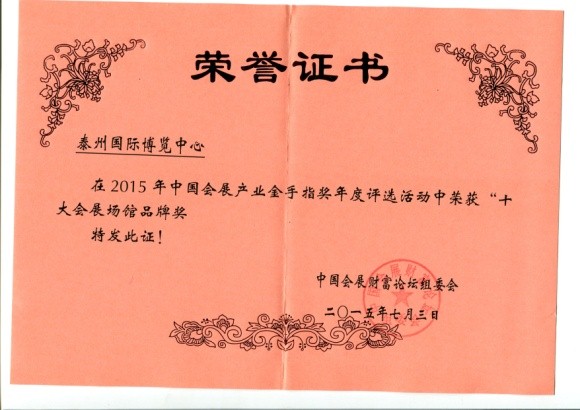 荣誉证书
泰州国际博览中心
在2015年中国会展产业金手指奖年度评选活动中荣获“十
大会展场馆品牌奖
特发此证！
中国会展财富论坛组委会
二〇一五年七月三日